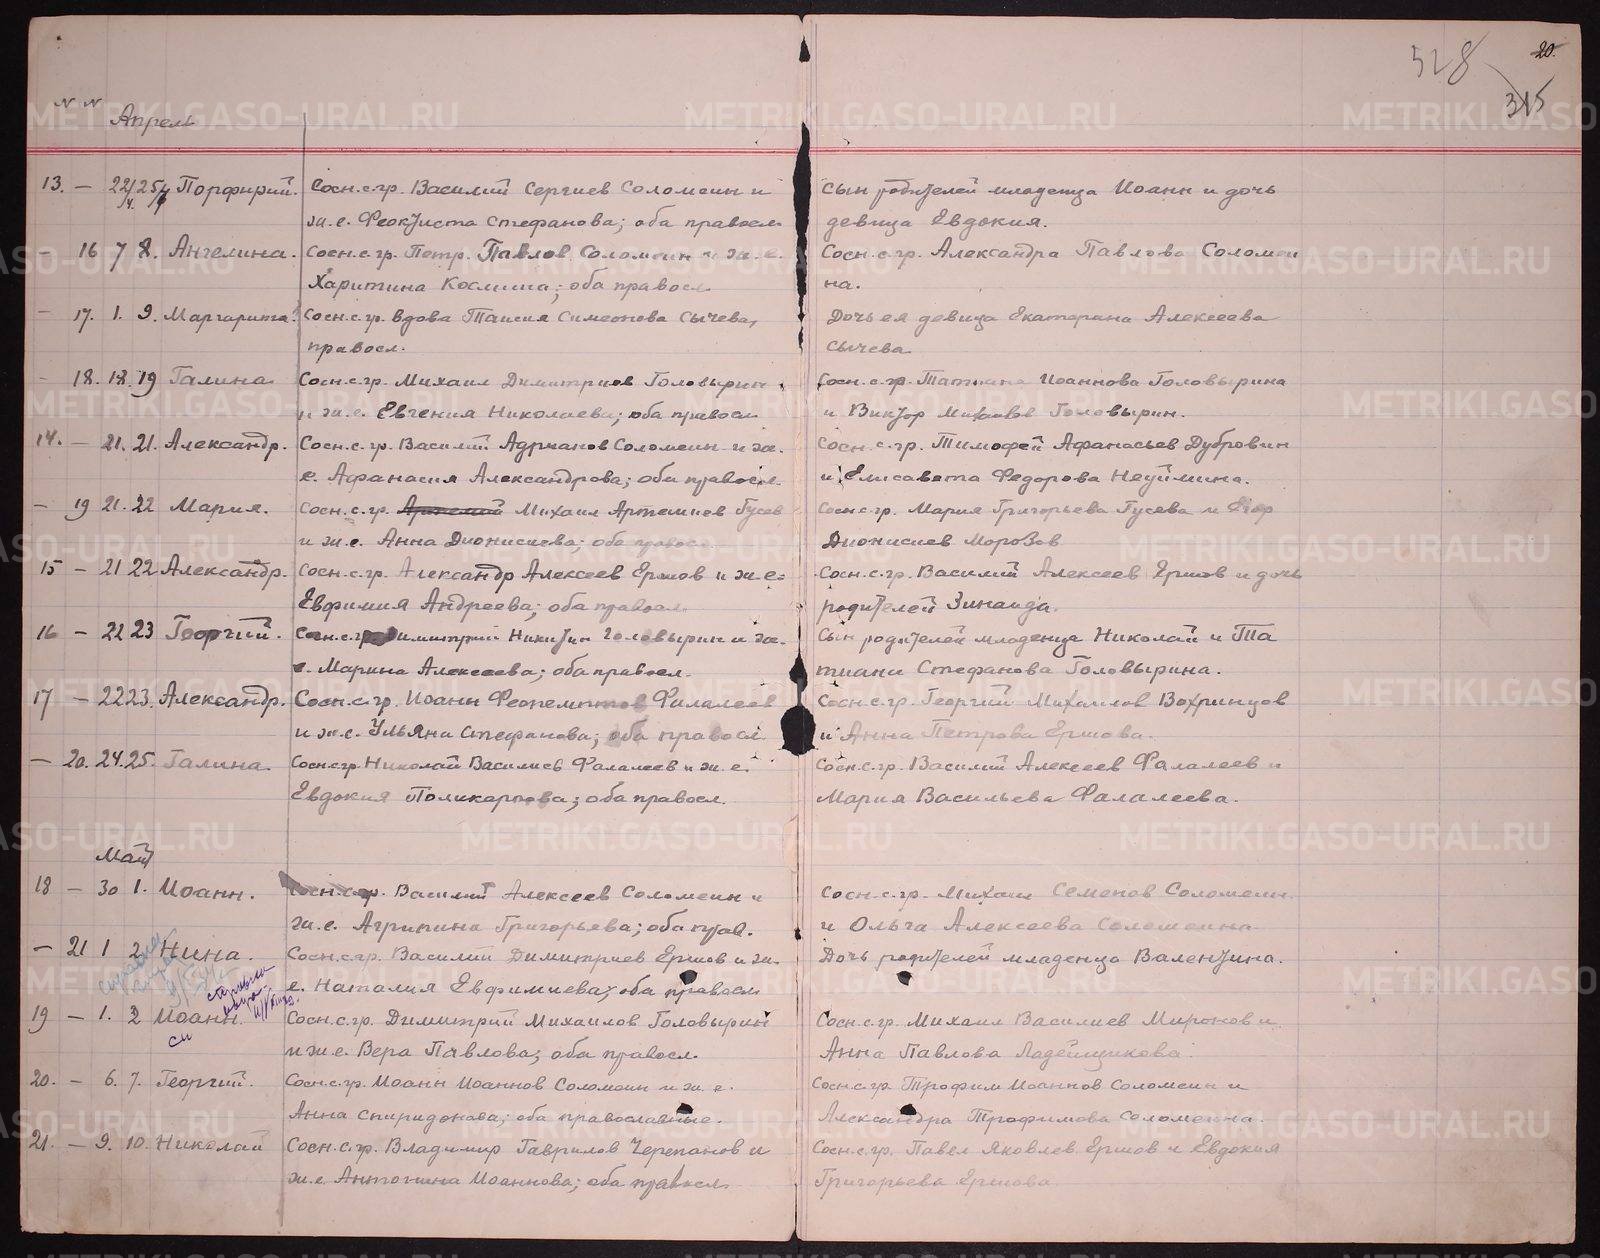 528
20.
315
N N
Апрель
13. — 22/4. 25/4 Порфирий. Сосн.с.гр. Василий Сергиев Соломеин и Сын родителей младенца Иоанн и дочь
ж.е. Феоктиста Стефанова; оба правосл. девица Евдокия.
— 16 7 8. Ангелина. Сосн.с.гр. Петр. Павлов Соломеин и ж.е. Сосн.с.гр. Александра Павлова Соломеи
Харитина Косьмина; оба правосл. на.
— 17. 1. 9. Маргарита. Сосн.с.гр. вдова Таисия Симеонова Сычева, Дочь ея девица Екатерина Алексеева
правосл. Сычева.
— 18. 18. 19 Галина. Сосн.с.гр. Михаил Димитриев Головырин Сосн.с.гр. Татиана Иоаннова Головырина
и ж.е. Евгения Николаева; оба правосл. и Виктор Михаилов Головырин.
14. — 21. 21. Александр. Сосн.с.гр. Василий Адрианов Соломеин и ж. Сосн.с.гр. Тимофей Афанасьев Дубровин
е. Афанасия Александрова; оба правосл. и Елисавета Федорова Неуймина.
— 19 21. 22 Мария. Сосн.с.гр. Артемий Михаил Артемиев Гусев Сосн.с.гр. Мария Григорьева Гусева и Егор
и ж.е. Анна Дионисиева; оба правосл. Дионисиев Морозов
15 — 21 22 Александр. Сосн.с.гр. Александр Алексеев Ершов и ж.е. Сосн.с.гр. Василий Алексеев Ершов и дочь
Евфимия Андреева; оба правосл. родителей Зинаида.
16 — 22 23 Георгий. Сосн.с.гр. Димитрий Никитин Головырин и ж. Сын родителей младенца Николай и Та
е. Марина Алексеева; оба правосл. тиани Стефанова Головырина.
17 — 22 23. Александр. Сосн.с.гр. Иоанн Феопемптов Фалалеев Сосн.с.гр. Георгий Михаилов Вохринцов
и ж.е. Ульяна Стефанова; оба правосл. и Анна Петрова Ершова.
— 20. 24. 25. Галина. Сосн.с.гр. Николай Василиев Фалалеев и ж.е. Сосн.с.гр. Василий Алексеев Фалалеев и
Евдокия Поликарпова; оба правосл. Мария Васильева Фалалеева.
Май
18 — 30 1. Иоанн. Сосн.с.гр. Василий Алексеев Соломеин и Сосн.с.гр. Михаил Семенов Соломеин
ж.е. Агрипина Григорьева; оба прав. и Ольга Алексеева Соломеина
— 21 1 2 Нина. Сосн.с.гр. Василий Димитриев Ершов и ж. Дочь родителей младенца Валентина.
е. Наталия Евфимиева; оба правосл.
19 — 1. 2 Иоанн. Сосн.с.гр. Димитрий Михаилов Головырин Сосн.с.гр. Михаил Василиев Миронов и
и ж.е. Вера Павлова; оба правосл. Анна Павлова Ладейщикова.
20. — 6. 7. Георгий. Сосн.с.гр. Иоанн Иоаннов Соломеин и ж.е. Сосн.с.гр. Трофим Иоаннов Соломеин и
Анна Спиридонова; оба православные. Александра Трофимова Соломеина.
21. — 9. 10. Николай Сосн.с.гр. Владимир Гаврилов Черепанов и Сосн.с.гр. Павел Яковлев Ершов и Евдокия
ж.е. Антонина Иоаннова; оба правосл. Григорьева Ершова.
METRIKI.GASO-URAL.RU